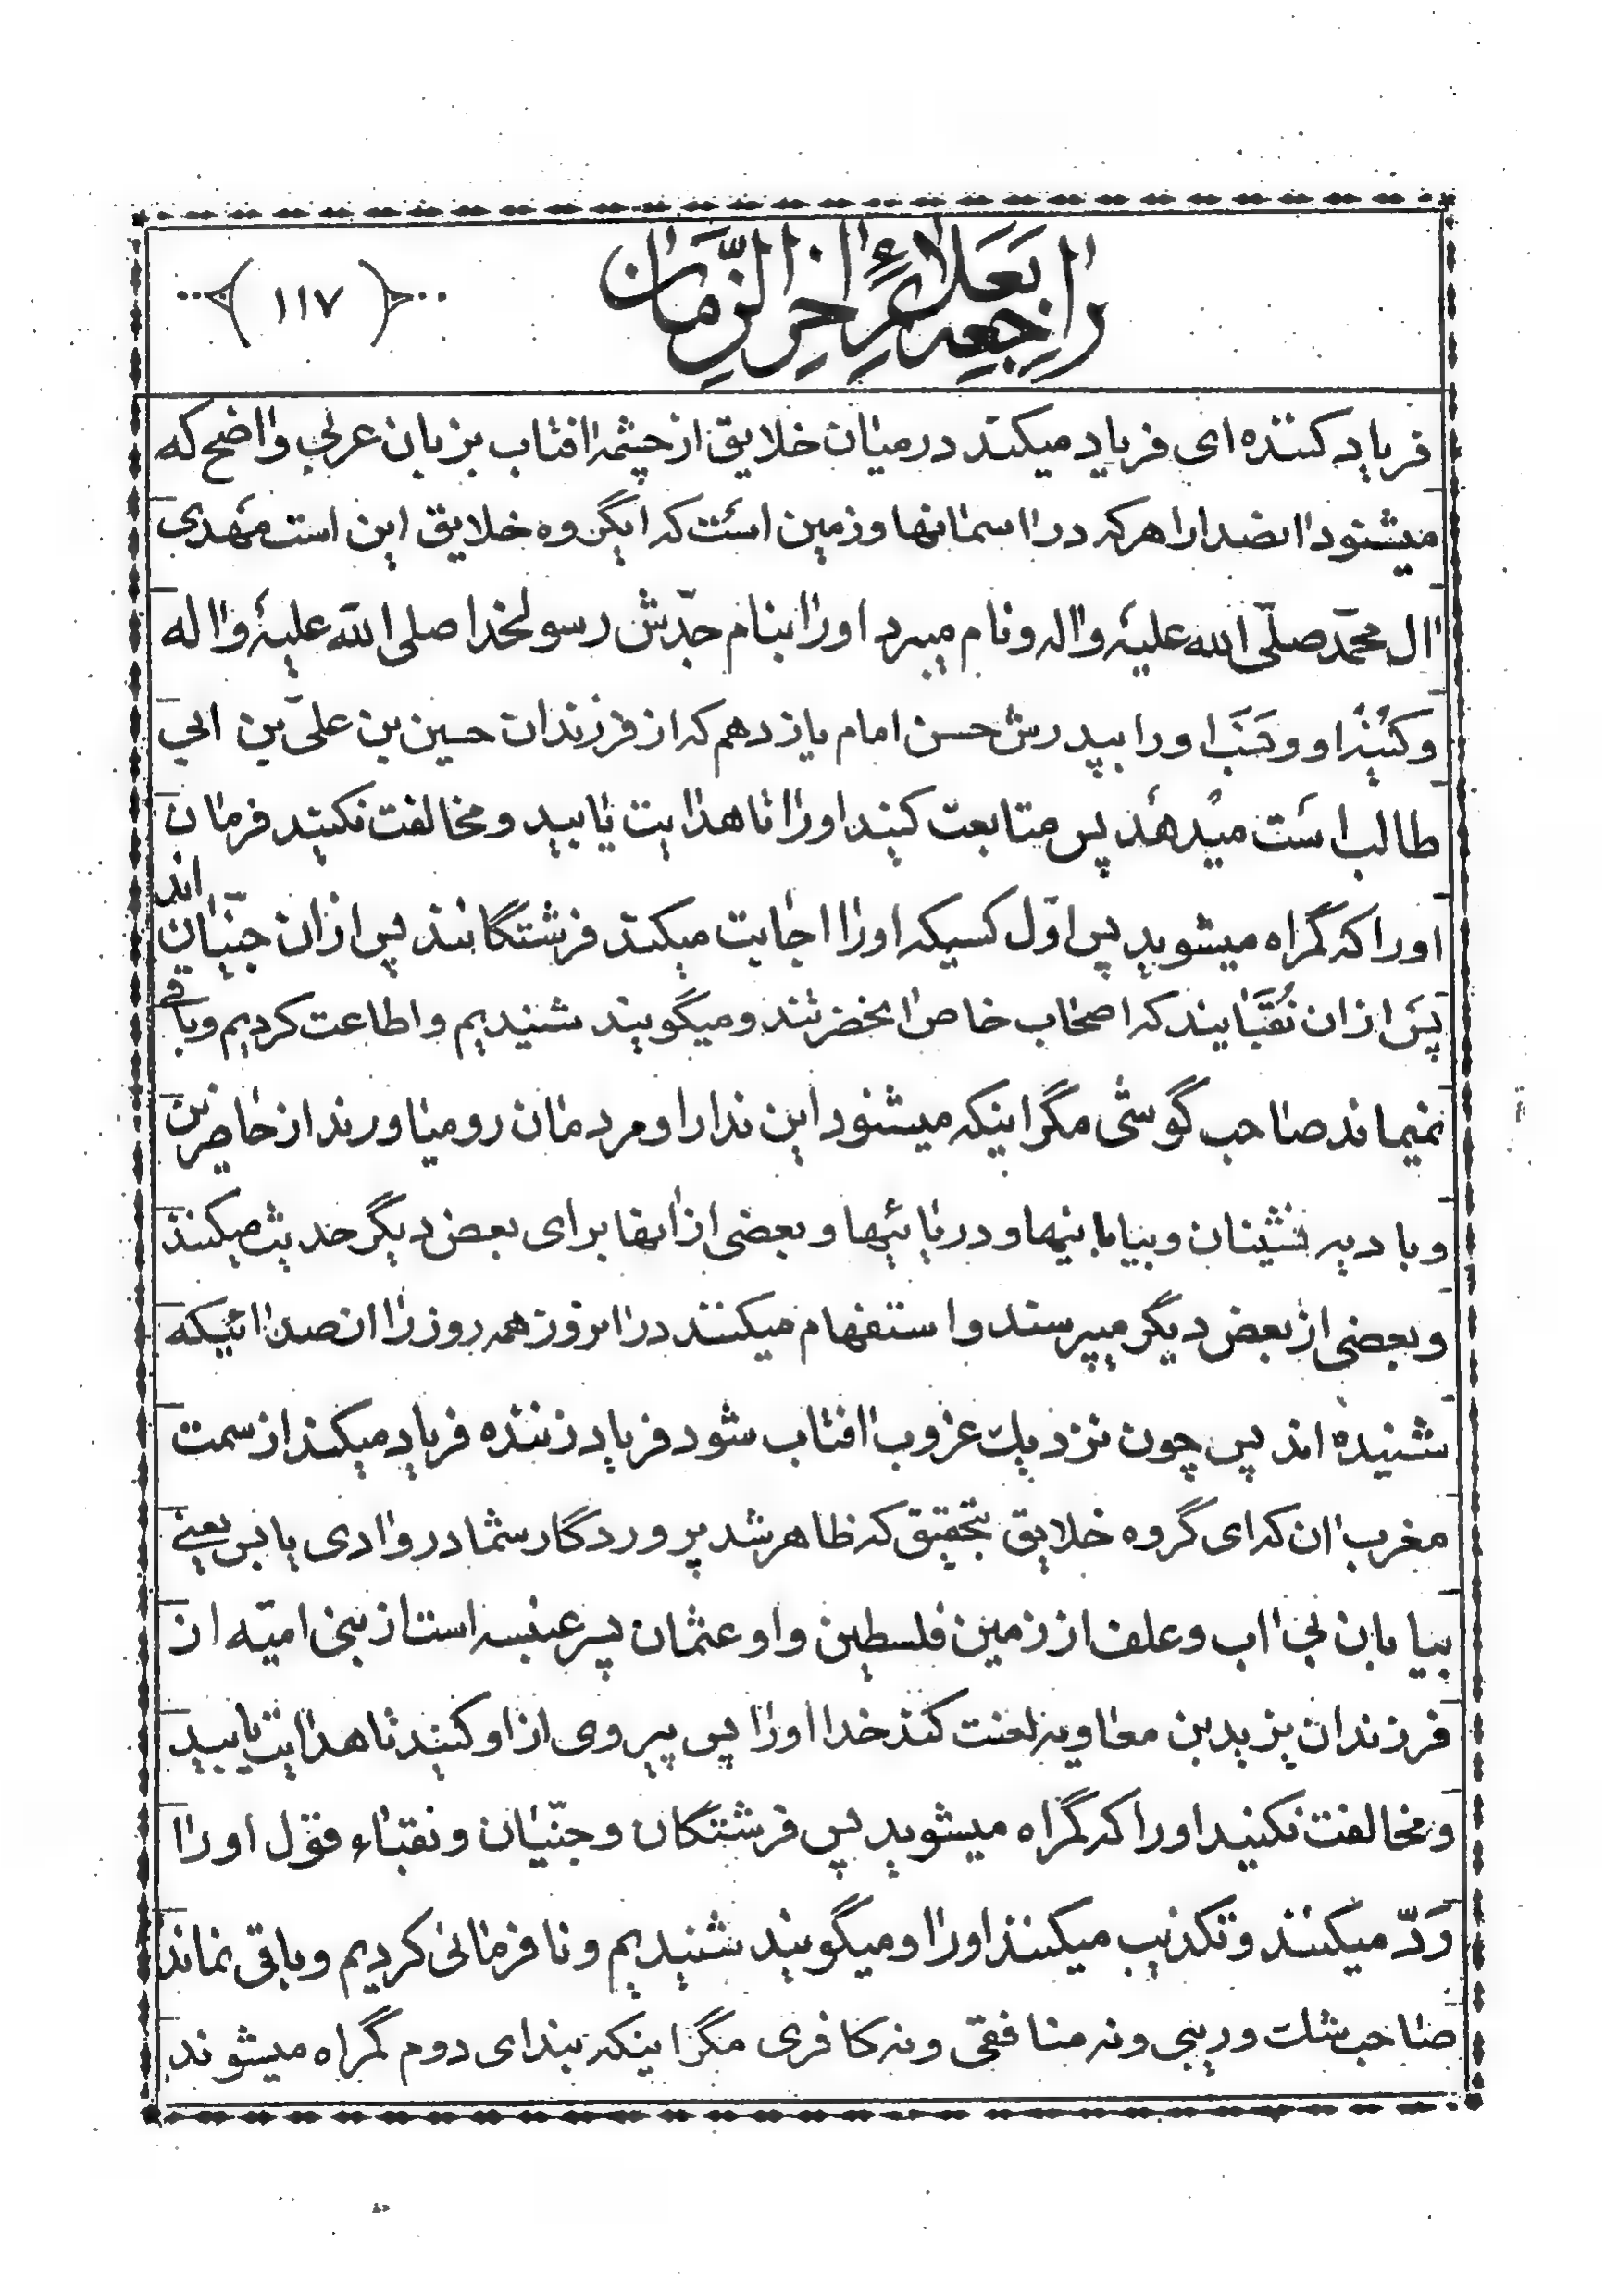 راجعه بعلائم آخر الزمان
﴿ ۱۱۷ ﴾
فریاد کننده ای فریاد میکند در میان خلایق از چشمه آفتاب بزبان عربی واضح که
میشنود آنصدا را هر که در آسمانها و زمین است که ایگروه خلایق این است مهدی
آل محمّد صلّی الله علیه و آله و نام میبرد او را بنام جدّش رسولخدا صلی الله علیه و آله
و کنیه او و نسب او را بپدرش حسن امام یازدهم که از فرزندان حسین بن علیّ بن ابی
طالب است میدهد پس متابعت کنید او را تا هدایت یابید و مخالفت نکنید فرمان
او را که گمراه میشوید پس اوّل کسیکه او را اجابت میکند فرشتگانند پس از آن جنّیان اند
پس از آن نُقَبایند که اصحاب خاص آنحضرتند و میگویند شنیدیم و اطاعت کردیم و باقی
نمیماند صاحب گوشی مگر اینکه میشنود این ندا را و مردمان رو میآورند از حاضرین
و بادیه نشینان و بیابانیها و دریائیها و بعضی از آنها برای بعض دیگر حدیث میکنند
و بعضی از بعض دیگر میپرسند و استفهام میکنند در آنروز همه روز را از آن صدائیکه
شنیده اند پس چون نزدیک غروب آفتاب شود فریاد زننده فریاد میکند از سمت
مغرب آن که ای گروه خلایق بتحقیق که ظاهر شد پروردگار شما در وادی یابس یعنی
بیابان بی آب و علف از زمین فلسطین و او عثمان پسر عنبسه است از بنی امیّه از
فرزندان یزید بن معاویه لعنت کند خدا او را پس پیروی از او کنید تا هدایت یابید
و مخالفت نکنید او را که گمراه میشوید پس فرشتگان و جنّیان و نقباء قول او را
رَدّ میکنند و تکذیب میکنند او را و میگویند شنیدیم و نافرمانی کردیم و باقی نماند
صاحب شک و ریبی و نه منافقی و نه کافری مگر اینکه بندای دوم گمراه میشوند